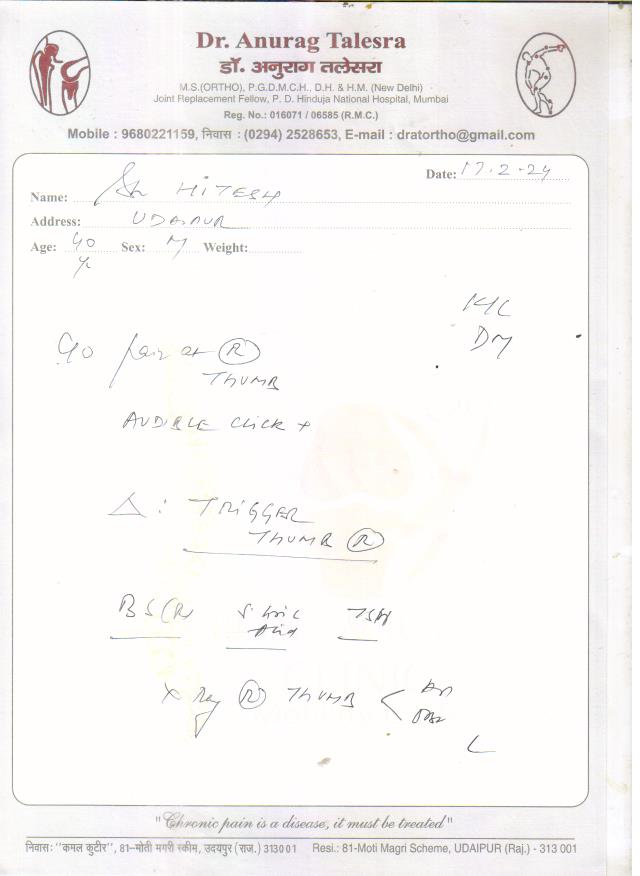 Dr. Anurag Talesra
डॉ. अनुराग तलेसरा
M.S.(ORTHO), P.G.D.M.C.H., D.H. & H.M. (New Delhi)
Joint Replacement Fellow, P. D. Hinduja National Hospital, Mumbai
Reg. No.: 016071 / 06585 (R.M.C.)
Mobile : 9680221159, निवास : (0294) 2528653, E-mail : dratortho@gmail.com
Date: 17.2.24
Name: HITESH
Address: UDAIPUR
Age: 40 Sex: M Weight:
Yr
K/C
DM
C/o pain at (R)
THUMB
AUDIBLE CLICK +
Δ : TRIGGER
THUMB (R)
BS(R) S. Uric TSH
Acid
X Ray (R) THUMB < AP
"Chronic pain is a disease, it must be treated"
निवास: "कमल कुटीर", 81-मोती मगरी स्कीम, उदयपुर (राज.) 313001 Resi.: 81-Moti Magri Scheme, UDAIPUR (Raj.) - 313 001